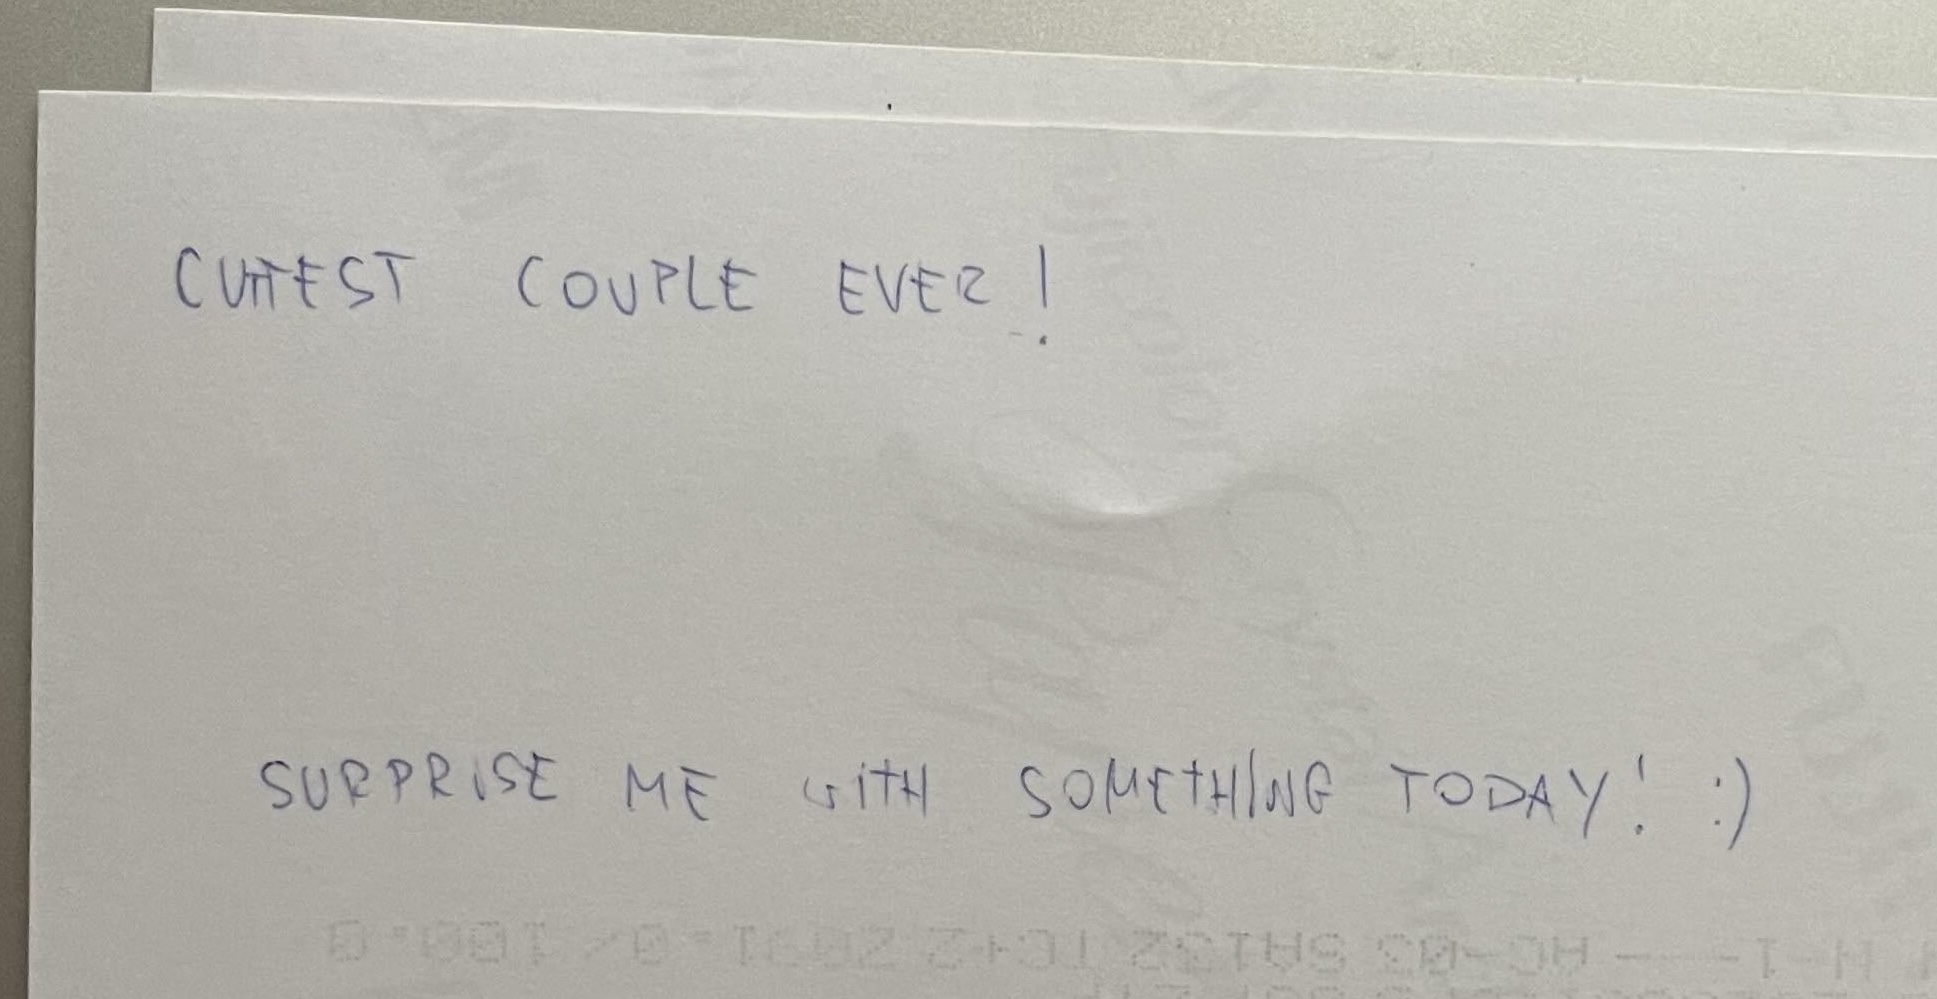 CUTTEST COUPLE EVER!
SURPRISE ME WITH SOMETHING TODAY! :)